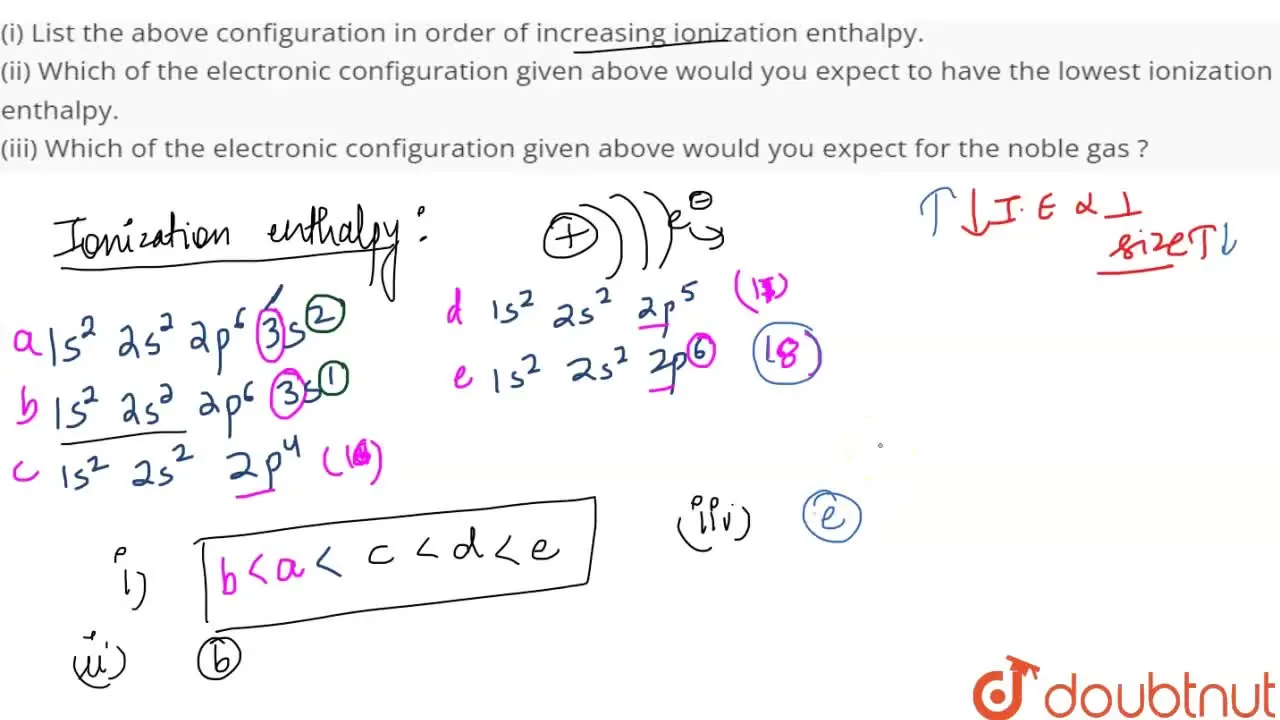 (i) List the above configuration in order of increasing ionization enthalpy.
(ii) Which of the electronic configuration given above would you expect to have the lowest ionization
enthalpy.
(iii) Which of the electronic configuration given above would you expect for the noble gas ?
Ionization enthalpy:
+ e⊖
↑ ↓ I.E α 1
size ↑ ↓
a 1s² 2s² 2p⁶ 3s²
b 1s² 2s² 2p⁶ 3s¹
c 1s² 2s² 2p⁴ (16)
d 1s² 2s² 2p⁵ (17)
e 1s² 2s² 2p⁶ (18)
i) b < a < c < d < e
ii) b
iii) e
doubtnut